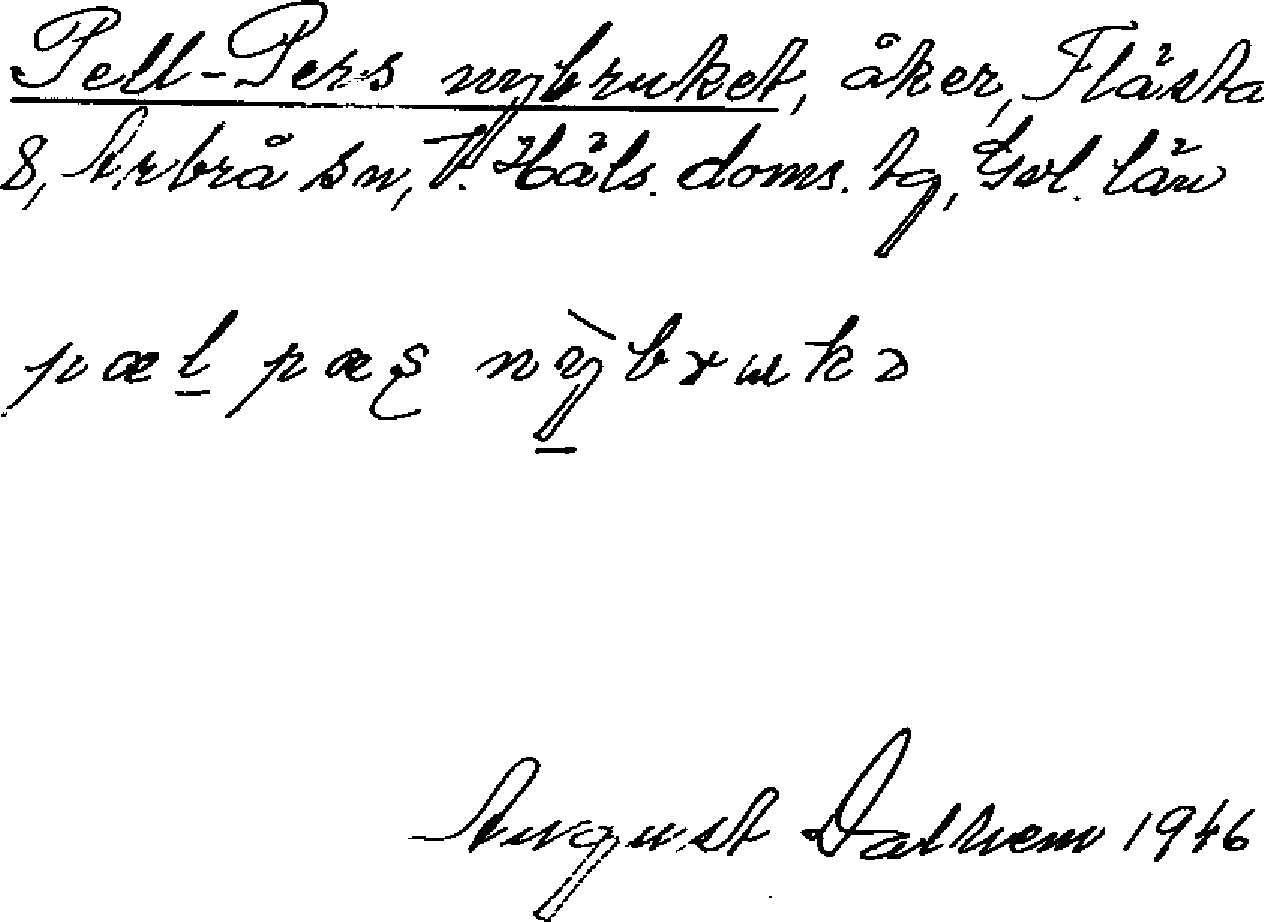 Pell-Pers nybruket, åker, Flästa
8, Arbrå sn, V. Häls. doms. tg, Gvl. län
pæl pæʂ nỳbrukə
August Dalhem 1946